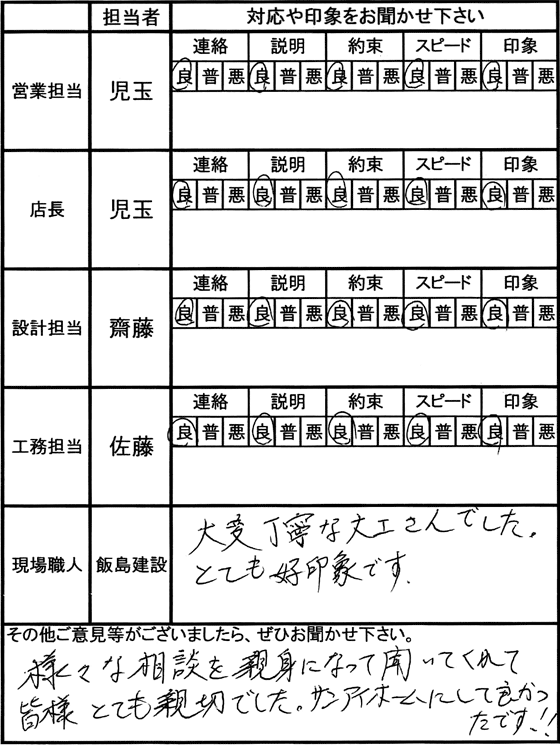 担当者 対応や印象をお聞かせ下さい
連絡 説明 約束 スピード 印象
営業担当 児玉 良 普 悪 良 普 悪 良 普 悪 良 普 悪 良 普 悪
連絡 説明 約束 スピード 印象
店長 児玉 良 普 悪 良 普 悪 良 普 悪 良 普 悪 良 普 悪
連絡 説明 約束 スピード 印象
設計担当 齋藤 良 普 悪 良 普 悪 良 普 悪 良 普 悪 良 普 悪
連絡 説明 約束 スピード 印象
工務担当 佐藤 良 普 悪 良 普 悪 良 普 悪 良 普 悪 良 普 悪
現場職人 飯島建設
大変丁寧な大工さんでした。
とても好印象です。
その他ご意見等がございましたら、ぜひお聞かせ下さい。
様々な相談を親身になって聞いてくれて
皆様とても親切でした。サンアイホームにして良かっ
たです!!